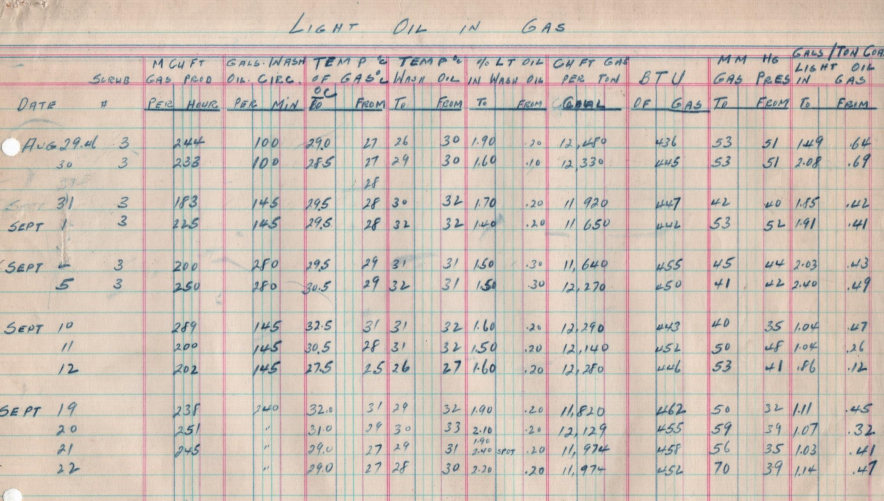 LIGHT OIL IN GAS
M CU FT GALS. WASH TEMP °C TEMP °C % LT OIL CU FT GAS MM HG GALS/TON COAL
SCRUB GAS PROD OIL CIRC. OF GAS °C WASH OIL IN WASH OIL PER TON BTU GAS PRES LIGHT OIL IN GAS
DATE # PER HOUR PER MIN TO FROM TO FROM TO FROM COAL OF GAS TO FROM TO FROM
AUG 29 3 244 100 29.0 27 26 30 1.90 .20 12,480 436 53 51 1.49 .64
30 3 233 100 28.5 27 29 30 1.60 .10 12,330 445 53 51 2.08 .69
28
31 3 183 145 29.5 28 30 32 1.70 .20 11 920 447 42 40 1.85 .42
SEPT 1 3 225 145 29.5 28 32 32 1.40 .20 11 650 442 53 52 1.91 .41
SEPT 3 200 280 29.5 29 31 31 1.50 .30 11,640 455 45 44 2.03 .43
5 3 250 280 30.5 29 32 31 1.50 .30 12,270 450 41 42 2.40 .49
SEPT 10 289 145 32.5 31 31 32 1.60 .20 12,290 443 40 35 1.04 .47
11 200 145 30.5 28 31 32 1.50 .20 12,140 452 50 48 1.04 .26
12 202 145 27.5 25 26 27 1.60 .20 12,280 446 53 41 .86 .12
SEPT 19 238 240 32.0 31 29 32 1.90 .20 11,820 462 50 32 1.11 .45
20 251 " 31.0 29 30 33 2.10 .20 12,129 455 59 39 1.07 .32
1.90
21 245 " 29.0 27 29 31 2.40 SPOT .20 11,974 458 56 35 1.03 .41
22 " 29.0 27 28 30 2.20 .20 11,974 452 70 39 1.14 .47